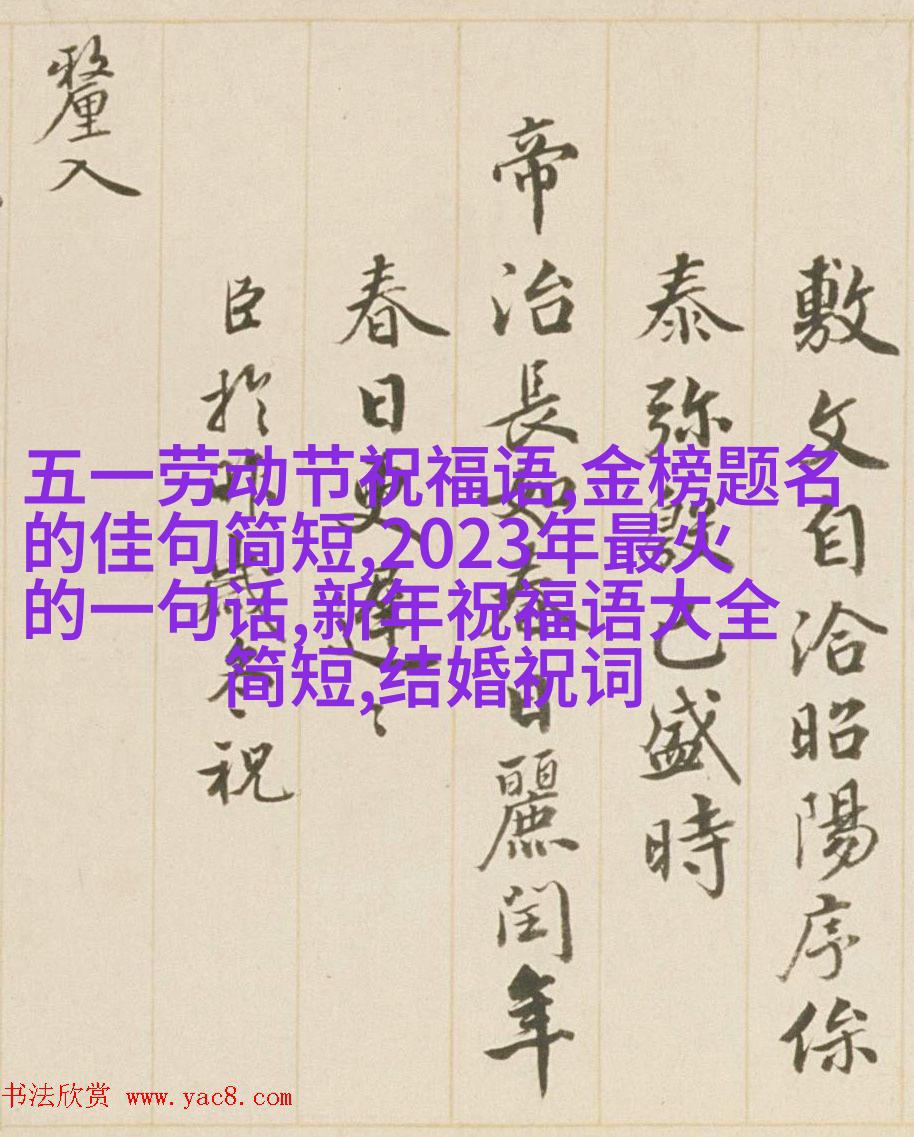 敷文自洽昭陽序
泰弥已盛時
帝治長如春日麗閏年
春日更遲〻
臣於歲祝
釐入
五一劳动节祝福语,金榜题名
的佳句简短,2023年最火
的一句话,新年祝福语大全
简短,结婚祝词
书法欣赏 www.yac8.com